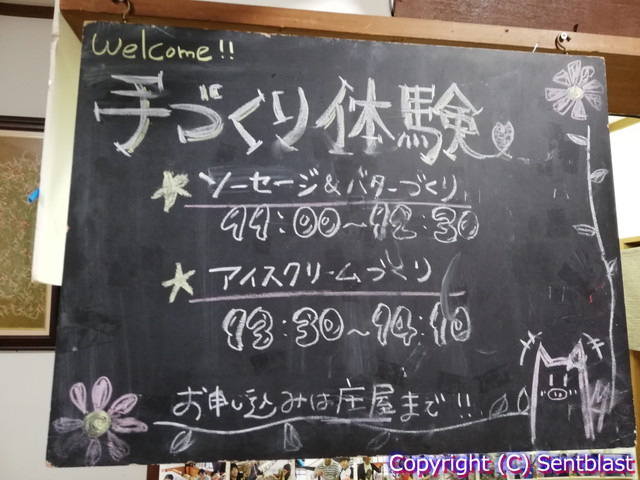 Welcome!!
手づくり体験
ソーセージ&バターづくり
11:00～12:30
アイスクリームづくり
13:30～14:10
お申し込みは庄屋まで!!
Copyright (C) Sentblast